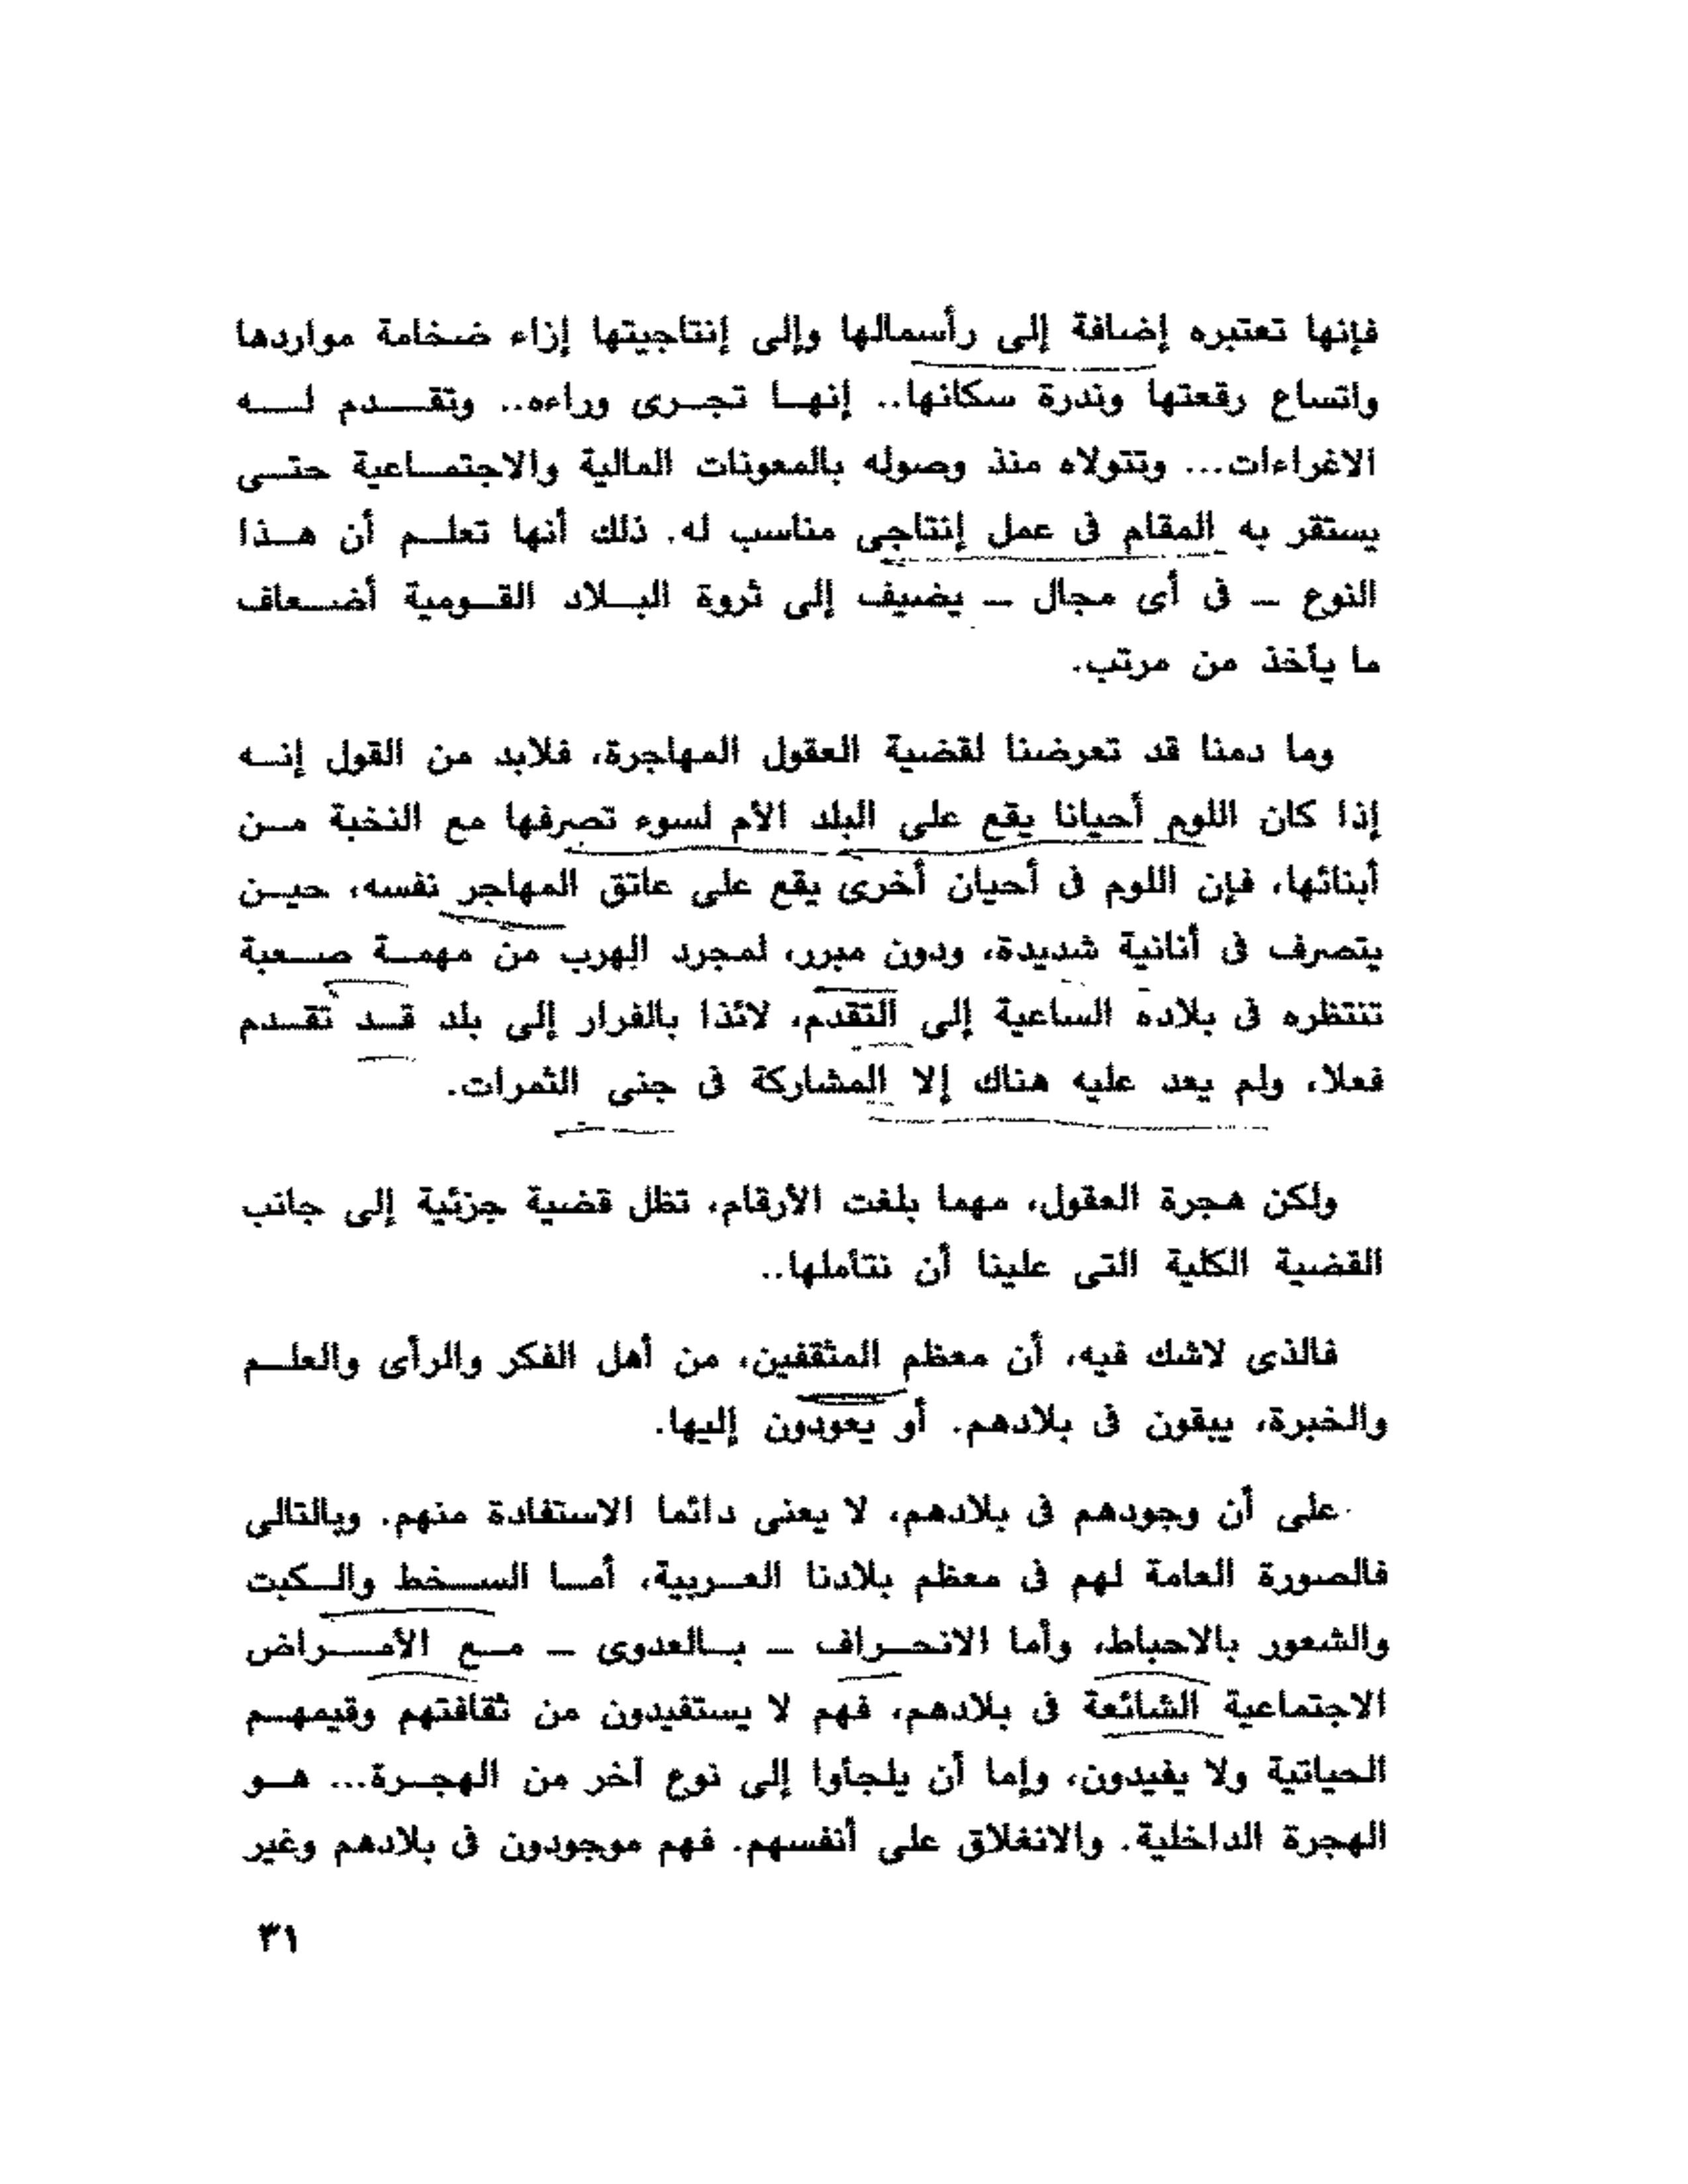 فإنها تعتبره إضافة إلى رأسمالها وإلى إنتاجيتها إزاء ضخامة مواردها
واتساع رقعتها وندرة سكانها.. إنها تجرى وراءه.. وتقدم له
الاغراءات... وتتولاه منذ وصوله بالمعونات المالية والاجتماعية حتى
يستقر به المقام فى عمل إنتاجى مناسب له. ذلك أنها تعلم أن هذا
النوع - فى أى مجال - يضيف إلى ثروة البلاد القومية أضعاف
ما يأخذ من مرتب.
وما دمنا قد تعرضنا لقضية العقول المهاجرة، فلابد من القول إنه
إذا كان اللوم أحيانا يقع على البلد الأم لسوء تصرفها مع النخبة من
أبنائها، فإن اللوم فى أحيان أخرى يقع على عاتق المهاجر نفسه، حين
يتصرف فى أنانية شديدة، ودون مبرر، لمجرد الهرب من مهمة صعبة
تنتظره فى بلاده الساعية إلى التقدم، لائذا بالفرار إلى بلد قد تقدم
فعلا، ولم يعد عليه هناك إلا المشاركة فى جنى الثمرات.
ولكن هجرة العقول، مهما بلغت الأرقام، تظل قضية جزئية إلى جانب
القضية الكلية التى علينا أن نتأملها..
فالذى لاشك فيه، أن معظم المثقفين، من أهل الفكر والرأى والعلم
والخبرة، يبقون فى بلادهم. أو يعودون إليها.
على أن وجودهم فى بلادهم، لا يعنى دائما الاستفادة منهم. وبالتالى
فالصورة العامة لهم فى معظم بلادنا العربية، أما السخط والكبت
والشعور بالاحباط، وأما الانحراف - بالعدوى - مع الأمراض
الاجتماعية الشائعة فى بلادهم، فهم لا يستفيدون من ثقافتهم وقيمهم
الحياتية ولا يفيدون، وإما أن يلجأوا إلى نوع آخر من الهجرة... هو
الهجرة الداخلية. والانغلاق على أنفسهم. فهم موجودون فى بلادهم وغير
٣١